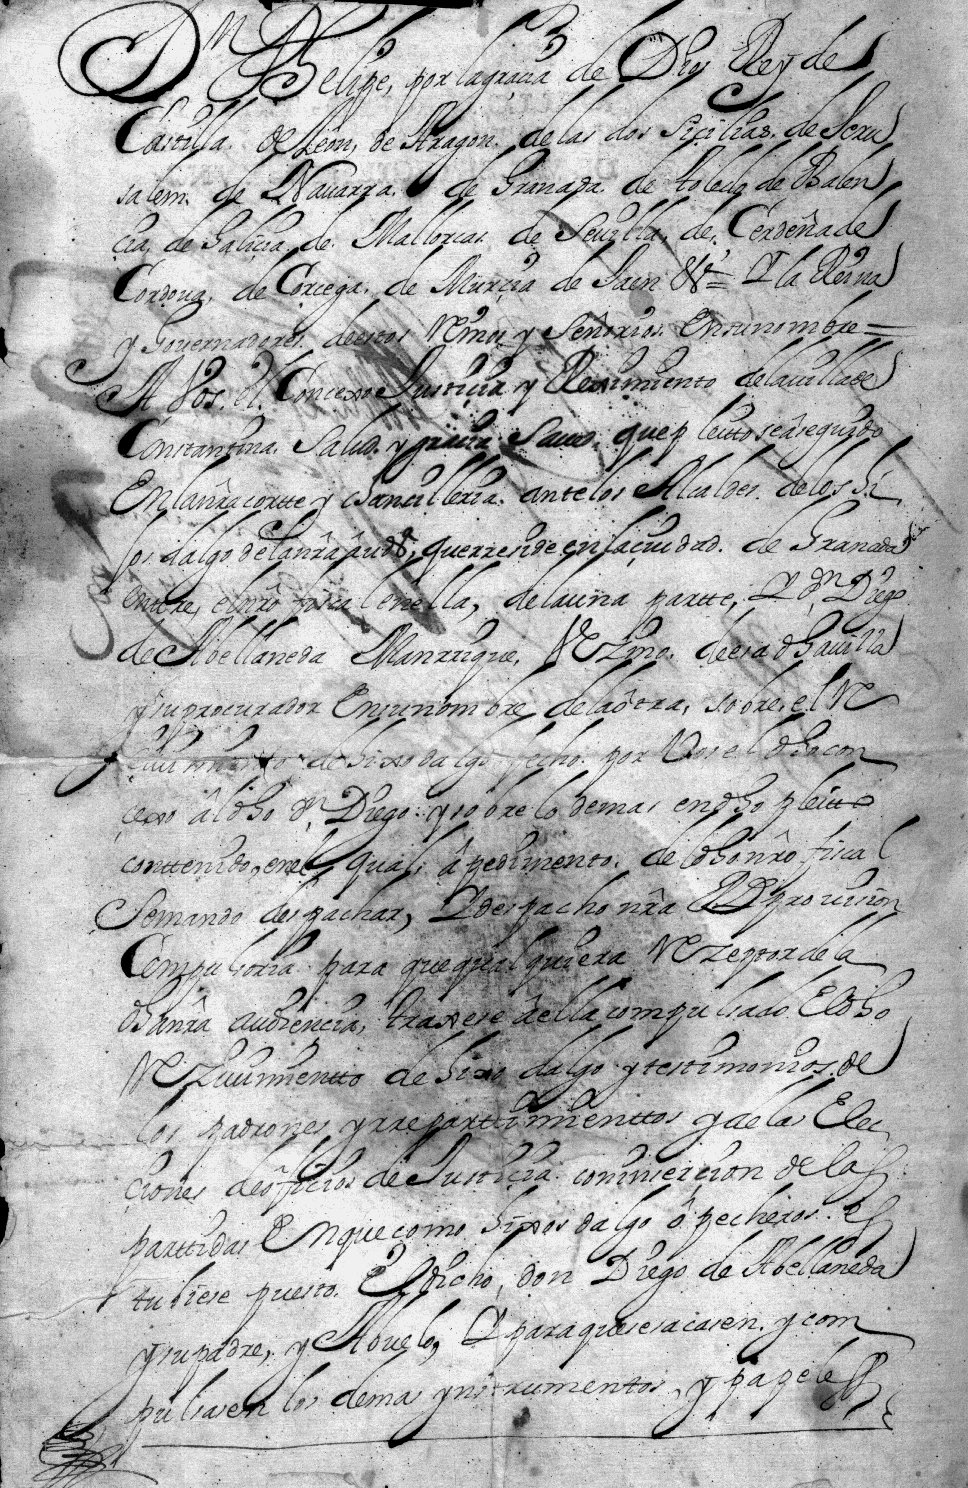 Dn Felipe, por la graçia de Dios Rey de
Castilla. de Leon, de Aragon. de las dos Siçilias. de Jeru
salem. de Nauarra. de Granada. de toledo de Balen
çia, de Galiçia, de. Mallorcas. de Seuilla, de, Çerdeña de
Cordoua, de Corçega. de Murçia de Jaen &a = Y la Reina
y Gouernadores. de estos Reinos y Señorios. En su nombre =
A Vos, el Conçexo Justiçia y Reximiento de la villa de
Constantina. Salud. y graçia Saued. que pleitto se a seguido
En la nrâ cortte y chançilleria. ante los Alcaldes. de los hi
jos dalgo de la nrâ audª, que rreside en la çiudad. de Granada
Enttre, el nrô fiscal en ella, de la una partte, Y Dn Diego
de Abellaneda Manrrique, Vezino. de esa dha villa
y su procurador En su nombre, de la ôtra, sobre, el Re
çiuimiento de hixo dalgo fecho. por Vos el dho con
çexo âl dho Dn Diego. y sobre lo demas en dho pleitto
conttenido, en el qual, â pedimento. del dho nrô fiscal
Se mando despachar, Y despacho nrâ Rl prouision
Compulsoria para que qualquiera Rezeptor de la
dha nrâ audiençia, traxese â ella compulsado El dho
Rezuimientto de hixo dalgo y testimonios. de
los padrones y rreparttimienttos y de las Elec
çiones de ôfiçios de Justiçia con inserçion de las
parttidas En que como hixos dalgo ô pecheros. es
tubiese puesto. El dicho, don Diego de Abellaneda
y su padre, y Abuelo, Y para que se sacasen. y com
pulsasen los demas ynstrumentos, y papeles